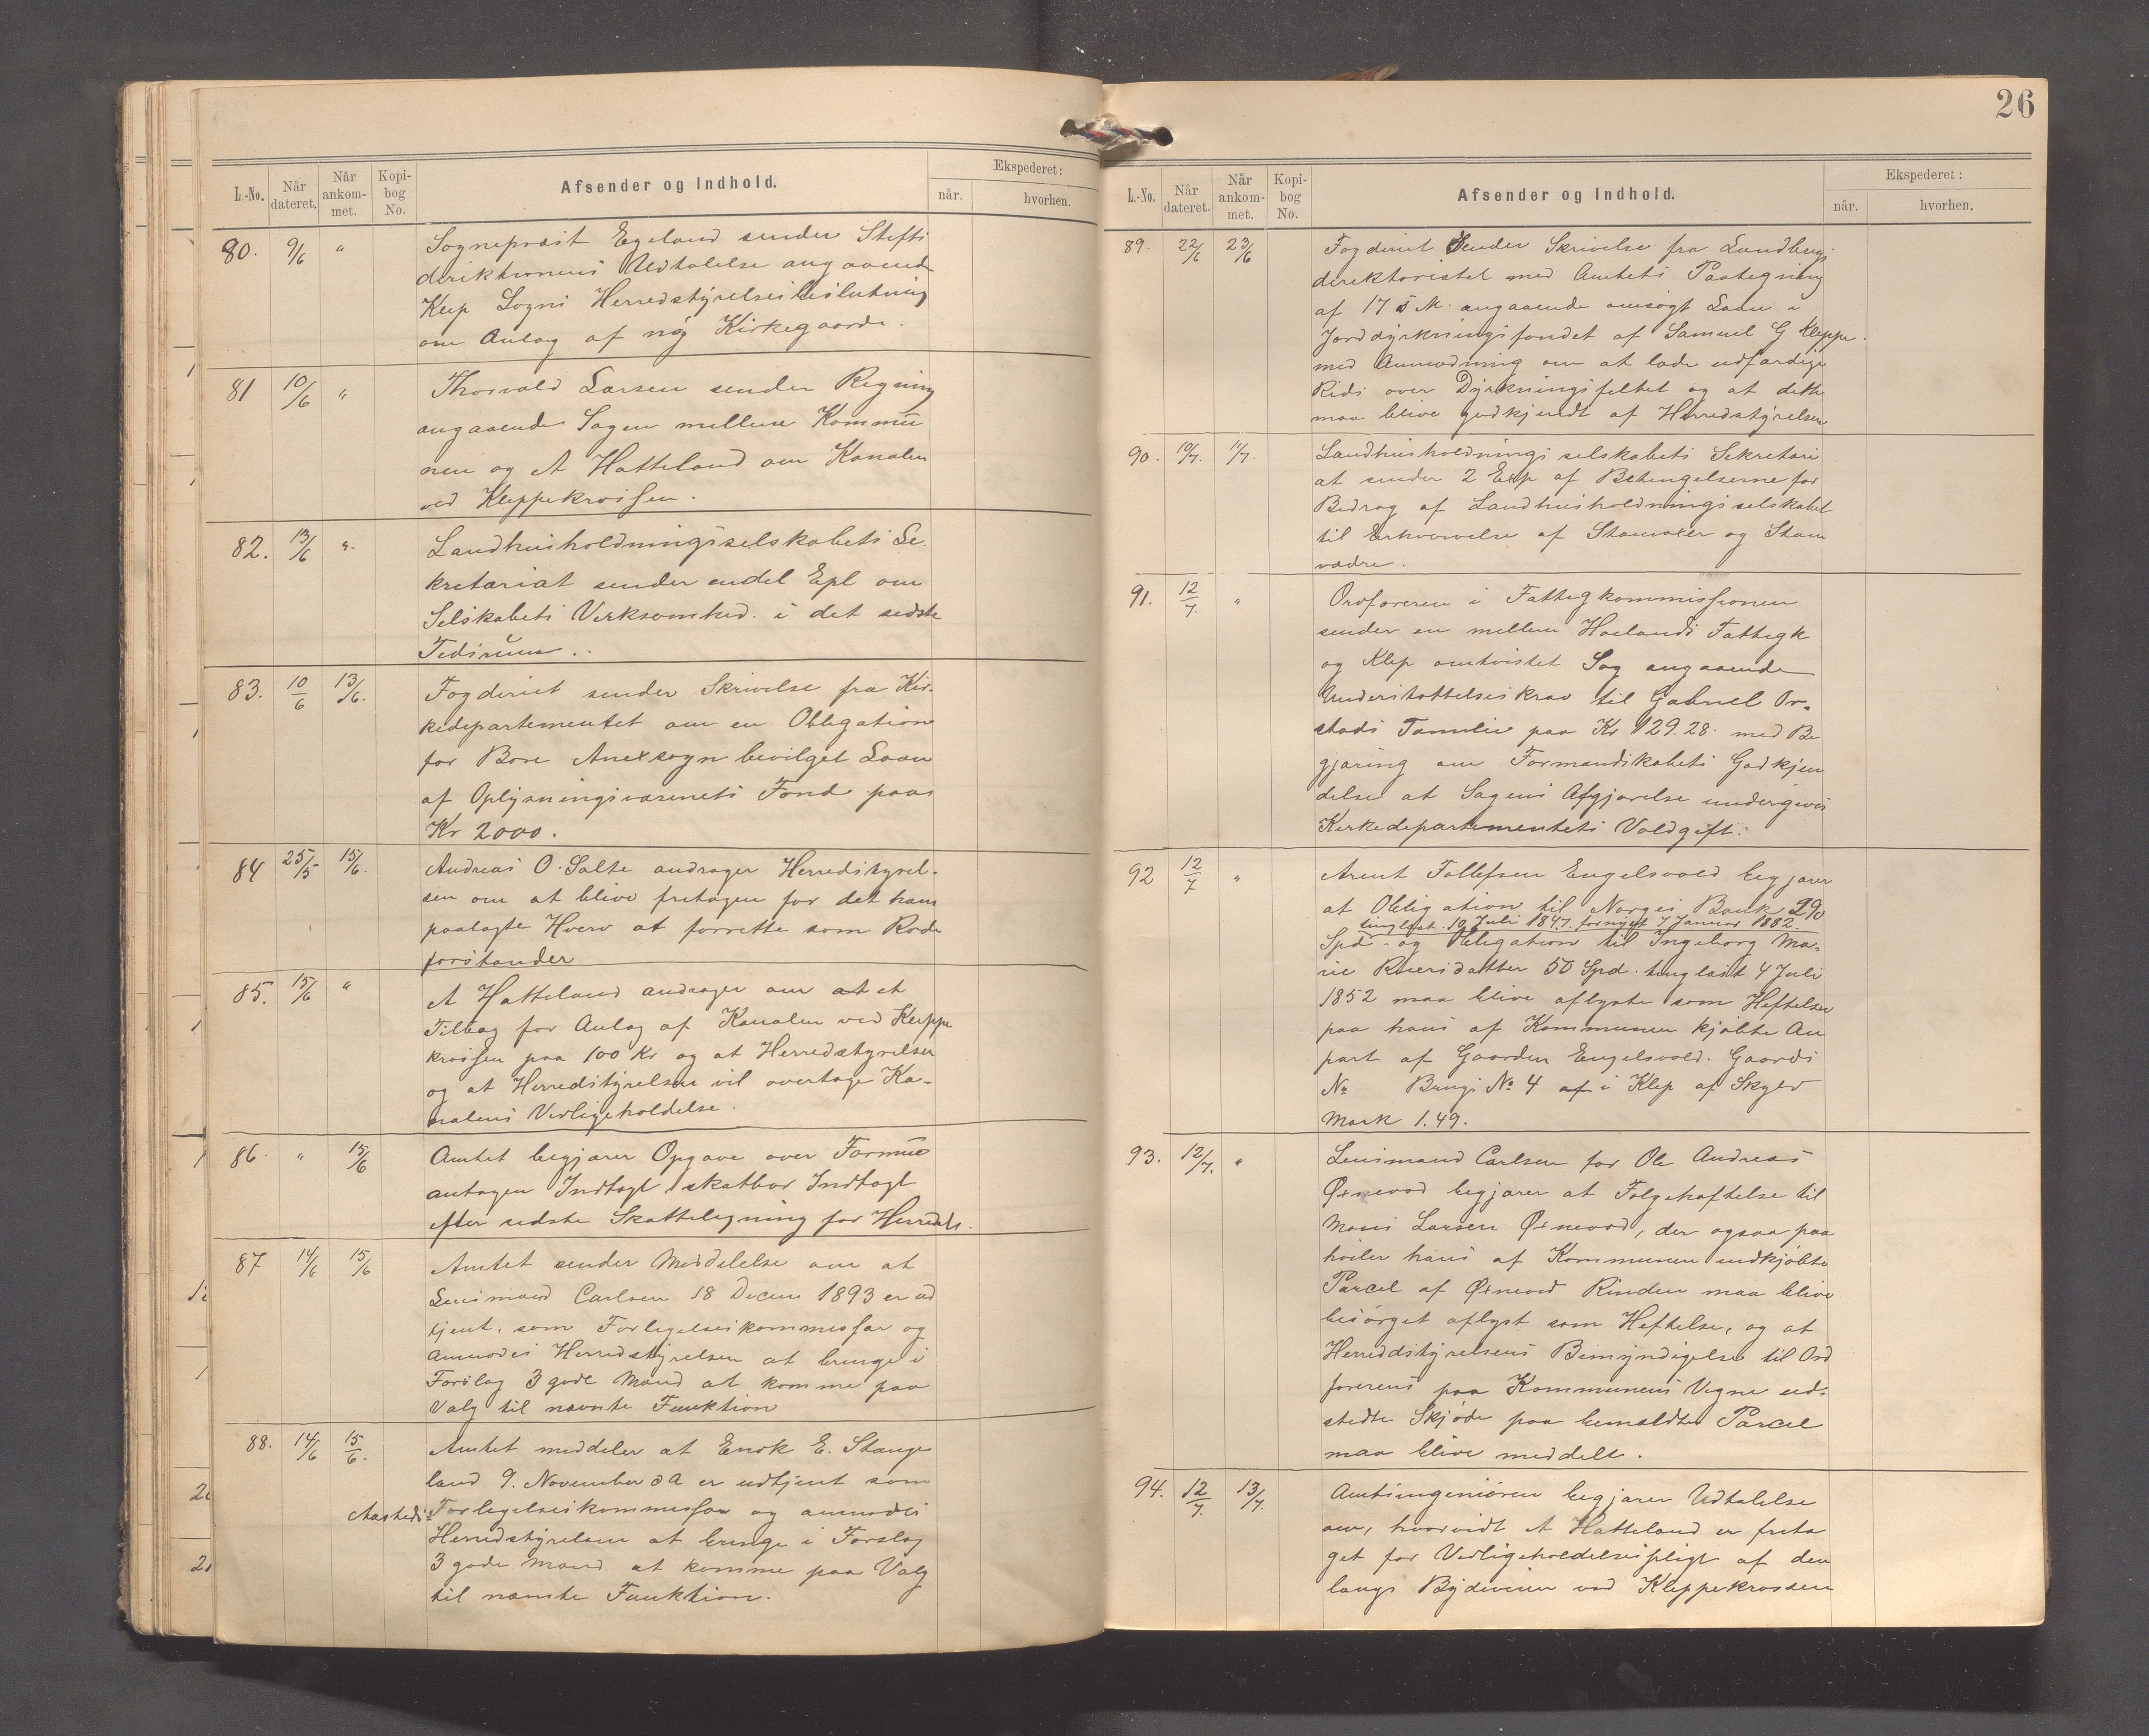 L.-No. Når dateret. Når ankommet. Kopibog No. Afsender og Indhold. Ekspederet: når. hvorhen.
80. 9/6 " Sognepræst Egeland sender Stifts
direktionens Udtalelse angaaende
Klep Sogns Herredstyrelses beslutning
om Anlæg af ny Kirkegaarde.
81 10/6 " Thorvald Larsen sender Regning
angaaende Sagen mellem Kommu
nen og A Hatteland om Kanalen
ved Kleppekrossen.
82. 13/6 " Landhusholdningsselskabets Se
kretariat sender endel Epl om
Selskabets Virksomhed i det sidste
Tidsrum.
83. 10/6 13/6. Fogderiet sender Skrivelse fra Kir-
kedepartementet om en Obligation
for Bore Anexsogn bevilget Laan
af Oplysningsvæsenets Fond paa
Kr 2000.
84 25/5 15/6. Andreas O. Salte andrager Herredstyrel-
sen om at blive fritagen for det ham
paalagte Hverv at forrette som Rode
forstander
85. 15/6 " A Hatteland andrager om at et
Tillæg for Anlæg af Kanalen ved Kleppe
krossen paa 100 Kr og at Herredstyrelsen
og at Herredstyrelsen vil overtage Ka-
nalens Vedligeholdelse.
86. " 15/6 Amtet begjærer Opgave over Formue
antagen Indtægt skatbar Indtægt
efter sidste Skatteligning for Herredet.
87 14/6 15/6 Amtet sender Meddelelse om at
Lensmand Carlsen 18 Decem 1893 er ud
tjent som Forligelseskommissær og
anmodes Herredstyrelsen at bringe i
Forslag 3 gode Mænd at komme paa
Valg til nævnte Funktion
88. 14/6 15/6. Amtet meddeler at Enok E. Stange
land 9. November d A er udtjent som
Aasteds- Forligelseskommissær og anmodes
Herredstyrelsen at bringe i Forslag
3 gode Mænd at komme paa Valg
til nævnte Funktion.
26
L.-No. Når dateret. Når ankommet. Kopibog No. Afsender og Indhold. Ekspederet: når. hvorhen.
89. 22/6 23/6 Fogderiet Sender Skrivelse fra Landbrugs
direktoratet med Amtets Paategning
af 17 d M. angaaende ansøgt Laan i
Jorddyrkningsfondet af Samuel G Kleppe.
med Anmodning om at lade udfærdige
Rids over Dyrkningsfeltet og at dette
maa blive godkjendt af Herredstyrelsen
90. 10/7. 11/7. Landhusholdnings selskabets Sekretari
at sender 2 Exp af Betingelserne for
Bidrag af Landhusholdningsselskabet
til Erhvervelse af Stamoxer og Stam
vædre.
91. 12/7. " Ordføreren i Fattigkommissionen
sender en mellem Haalands Fattigk
og Klep omtvistet Sag angaaende
Understøttelseskrav til Gabriel Or-
stads Familie paa Kr 129.28. med Be
gjæring om Formandskabets Godkjen
delse at Sagens Afgjørelse undergives
Kirkedepartementets Voldgift.
92 12/7 " Arent Tollefsen Engelsvold begjærer
at Obligation til Norges Bank 290
tinglæst. 19 Juli 1847. fornyet 7 Januar 1882.
Spd - og Obligation til Ingeborg Ma-
rie Reiersdatter 50 Spd. tinglæst 4 Juli
1852 maa blive aflyste som Heftelser
paa hans af Kommunen kjøbte An
part af Gaarden Engelsvold. Gaards
No Brugs No 4 af i Klep af Skyld
Mark 1.49.
93. 12/7. " Lensmand Carlsen for Ole Andreas
Øxnevad begjærer at Følgehæftelse til
Mons Larsen Øxnevad, der ogsaa paa
hviler hans af Kommunen indkjøbte
Parcel af Øxnevad Rinden maa blive
besørget aflyst som Heftelse, og at
Herredstyrelsens Bemyndigelse til Ord
førerens paa Kommunens Vegne ud-
stedte Skjøde paa bemeldte Parcel
maa blive meddelt.
94. 12/7. 13/7. Amtsingeniøren begjærer Udtalelse
om, hvorvidt A Hatteland er frita
get for Vedligeholdelsespligt af den
langs Bygdeveien ved Kleppekrossen